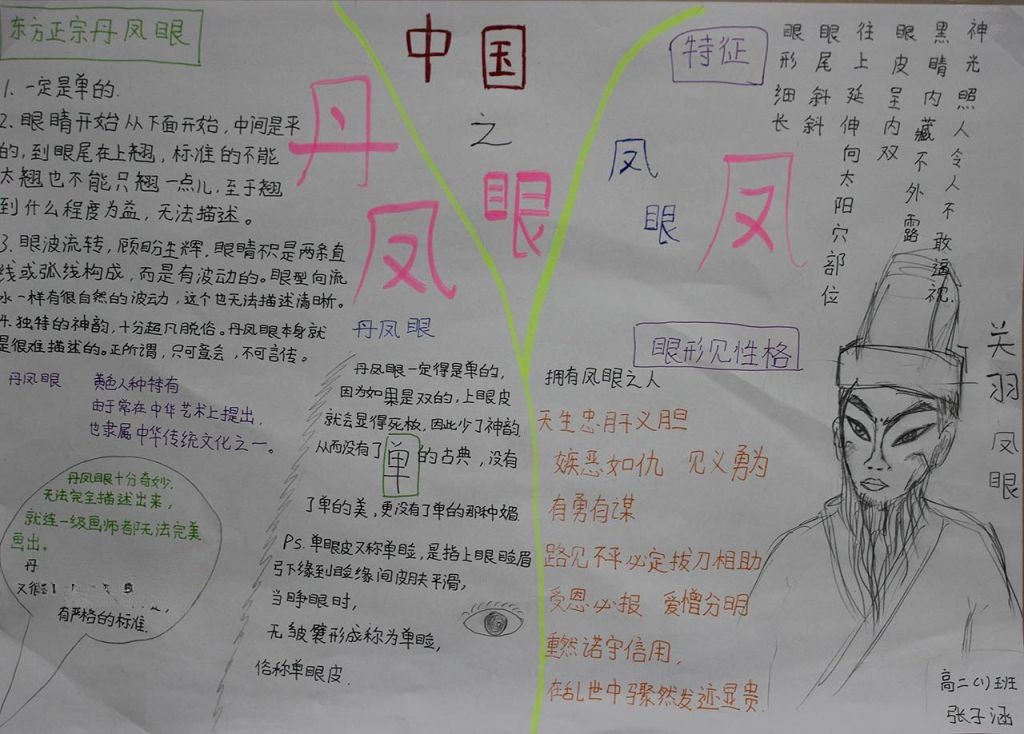 东方正宗丹凤眼
1、一定是单的.
2、眼睛开始从下面开始,中间是平
的,到眼尾在上翘,标准的不能
太翘也不能只翘一点儿,至于翘
到什么程度为益,无法描述。
3、眼波流转,顾盼生辉,眼睛不只是两条直
线或弧线构成,而是有波动的。眼型向流
水一样有很自然的波动,这个也无法描述清晰。
4.独特的神韵,十分超凡脱俗。丹凤眼本身就
是很难描述的。正所谓,只可意会,不可言传。
丹凤眼
黄色人种特有
由于常在中华艺术上提出,
也隶属中华传统文化之一。
丹凤眼十分奇妙,
无法完全描述出来,
就连一级画师都无法完美
画出。
丹
又很
有严格的标准.
中国
之
眼
丹
凤
丹凤眼
丹凤眼一定得是单的,
因为如果是双的,上眼皮
就会显得死板,因此少了神韵
从而没有了单的古典,没有
了单的美,更没有了单的那种媚.
PS.单眼皮又称单睑,是指上眼睑眉
弓下缘到睑缘间皮肤平滑,
当睁眼时,
无皱襞形成称为单睑,
俗称单眼皮.
特征
凤
眼
凤
神光照人令人不敢逼视.
黑睛内藏不外露
眼皮呈内双
往上延伸向太阳穴部位
眼尾斜斜
眼形细长
眼形见性格
拥有凤眼之人
天生忠肝义胆
嫉恶如仇 见义勇为
有勇有谋
路见不平必定拔刀相助
受恩必报 爱憎分明
重然诺守信用,
在乱世中骤然发迹显贵.
关羽凤眼
高二(1)班
张子涵